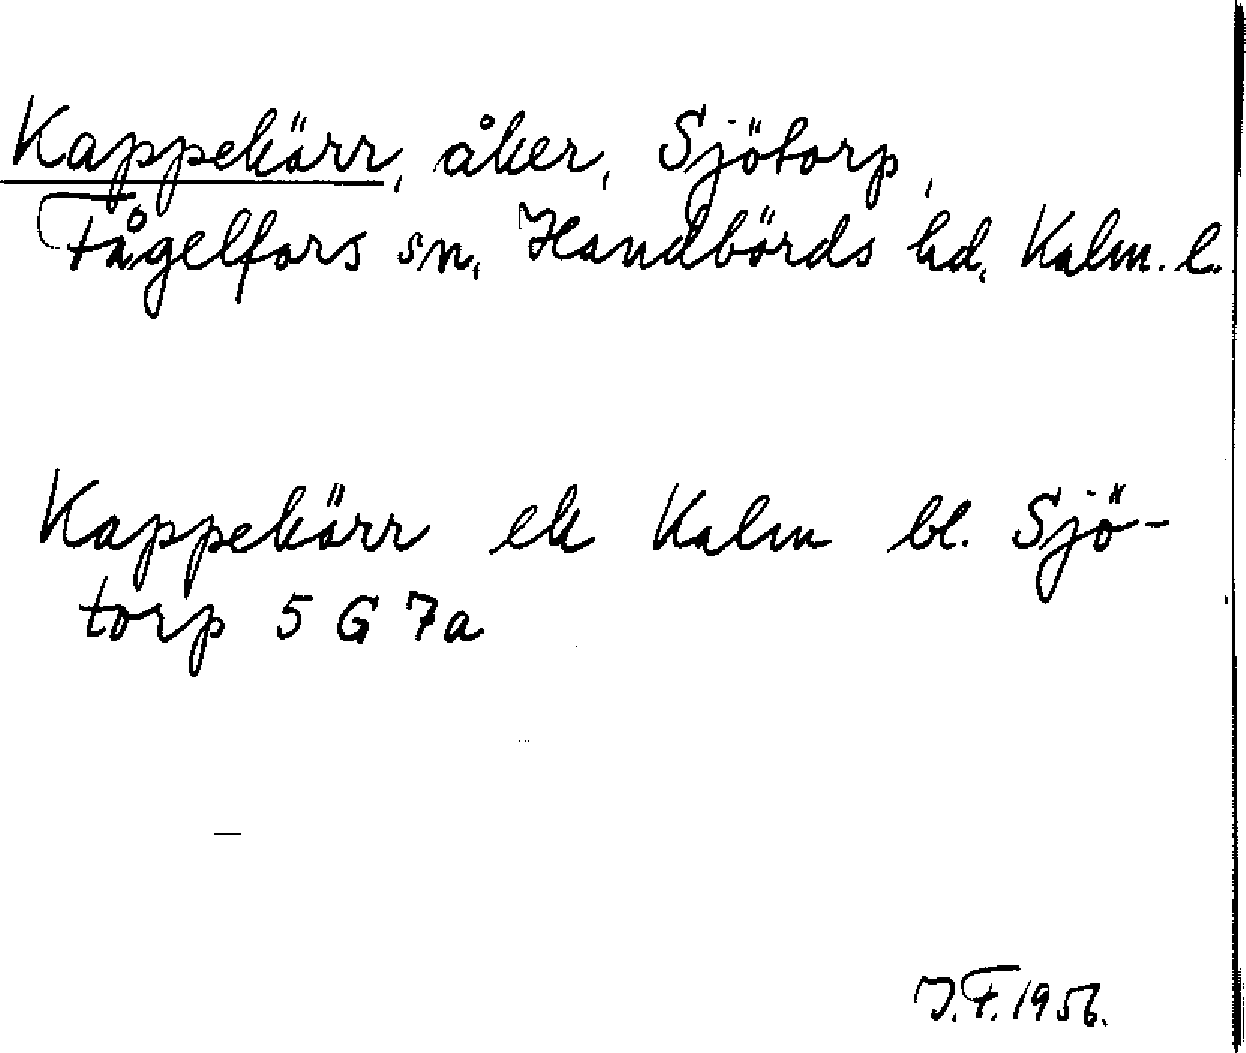 Kappekärr, åker, Sjötorp,
Fågelfors sn, Handbörds hd, Kalm. l.
Kappekärr ek Kalm bl. Sjö-
torp 5 G 7a
J.F. 1956.